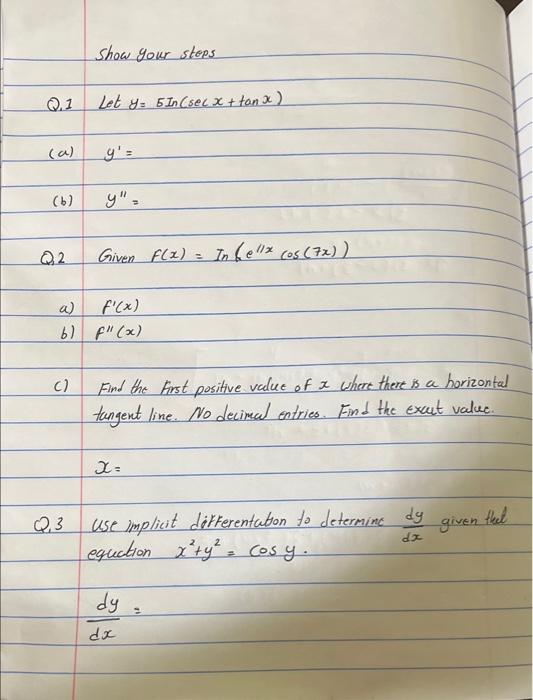 Show your steps
Q.1 Let y = 5 In (sec x + tan x)
(a) y' =
(b) y" =
Q.2 Given f(x) = In (e^11x cos (7x))
a) f'(x)
b) f"(x)
c) Find the first positive value of x where there is a horizontal
tangent line. No decimal entries. Find the exact value.
x =
Q.3 use implicit differentation to determine dy/dx given that
equction x²+y² = cos y.
dy/dx =